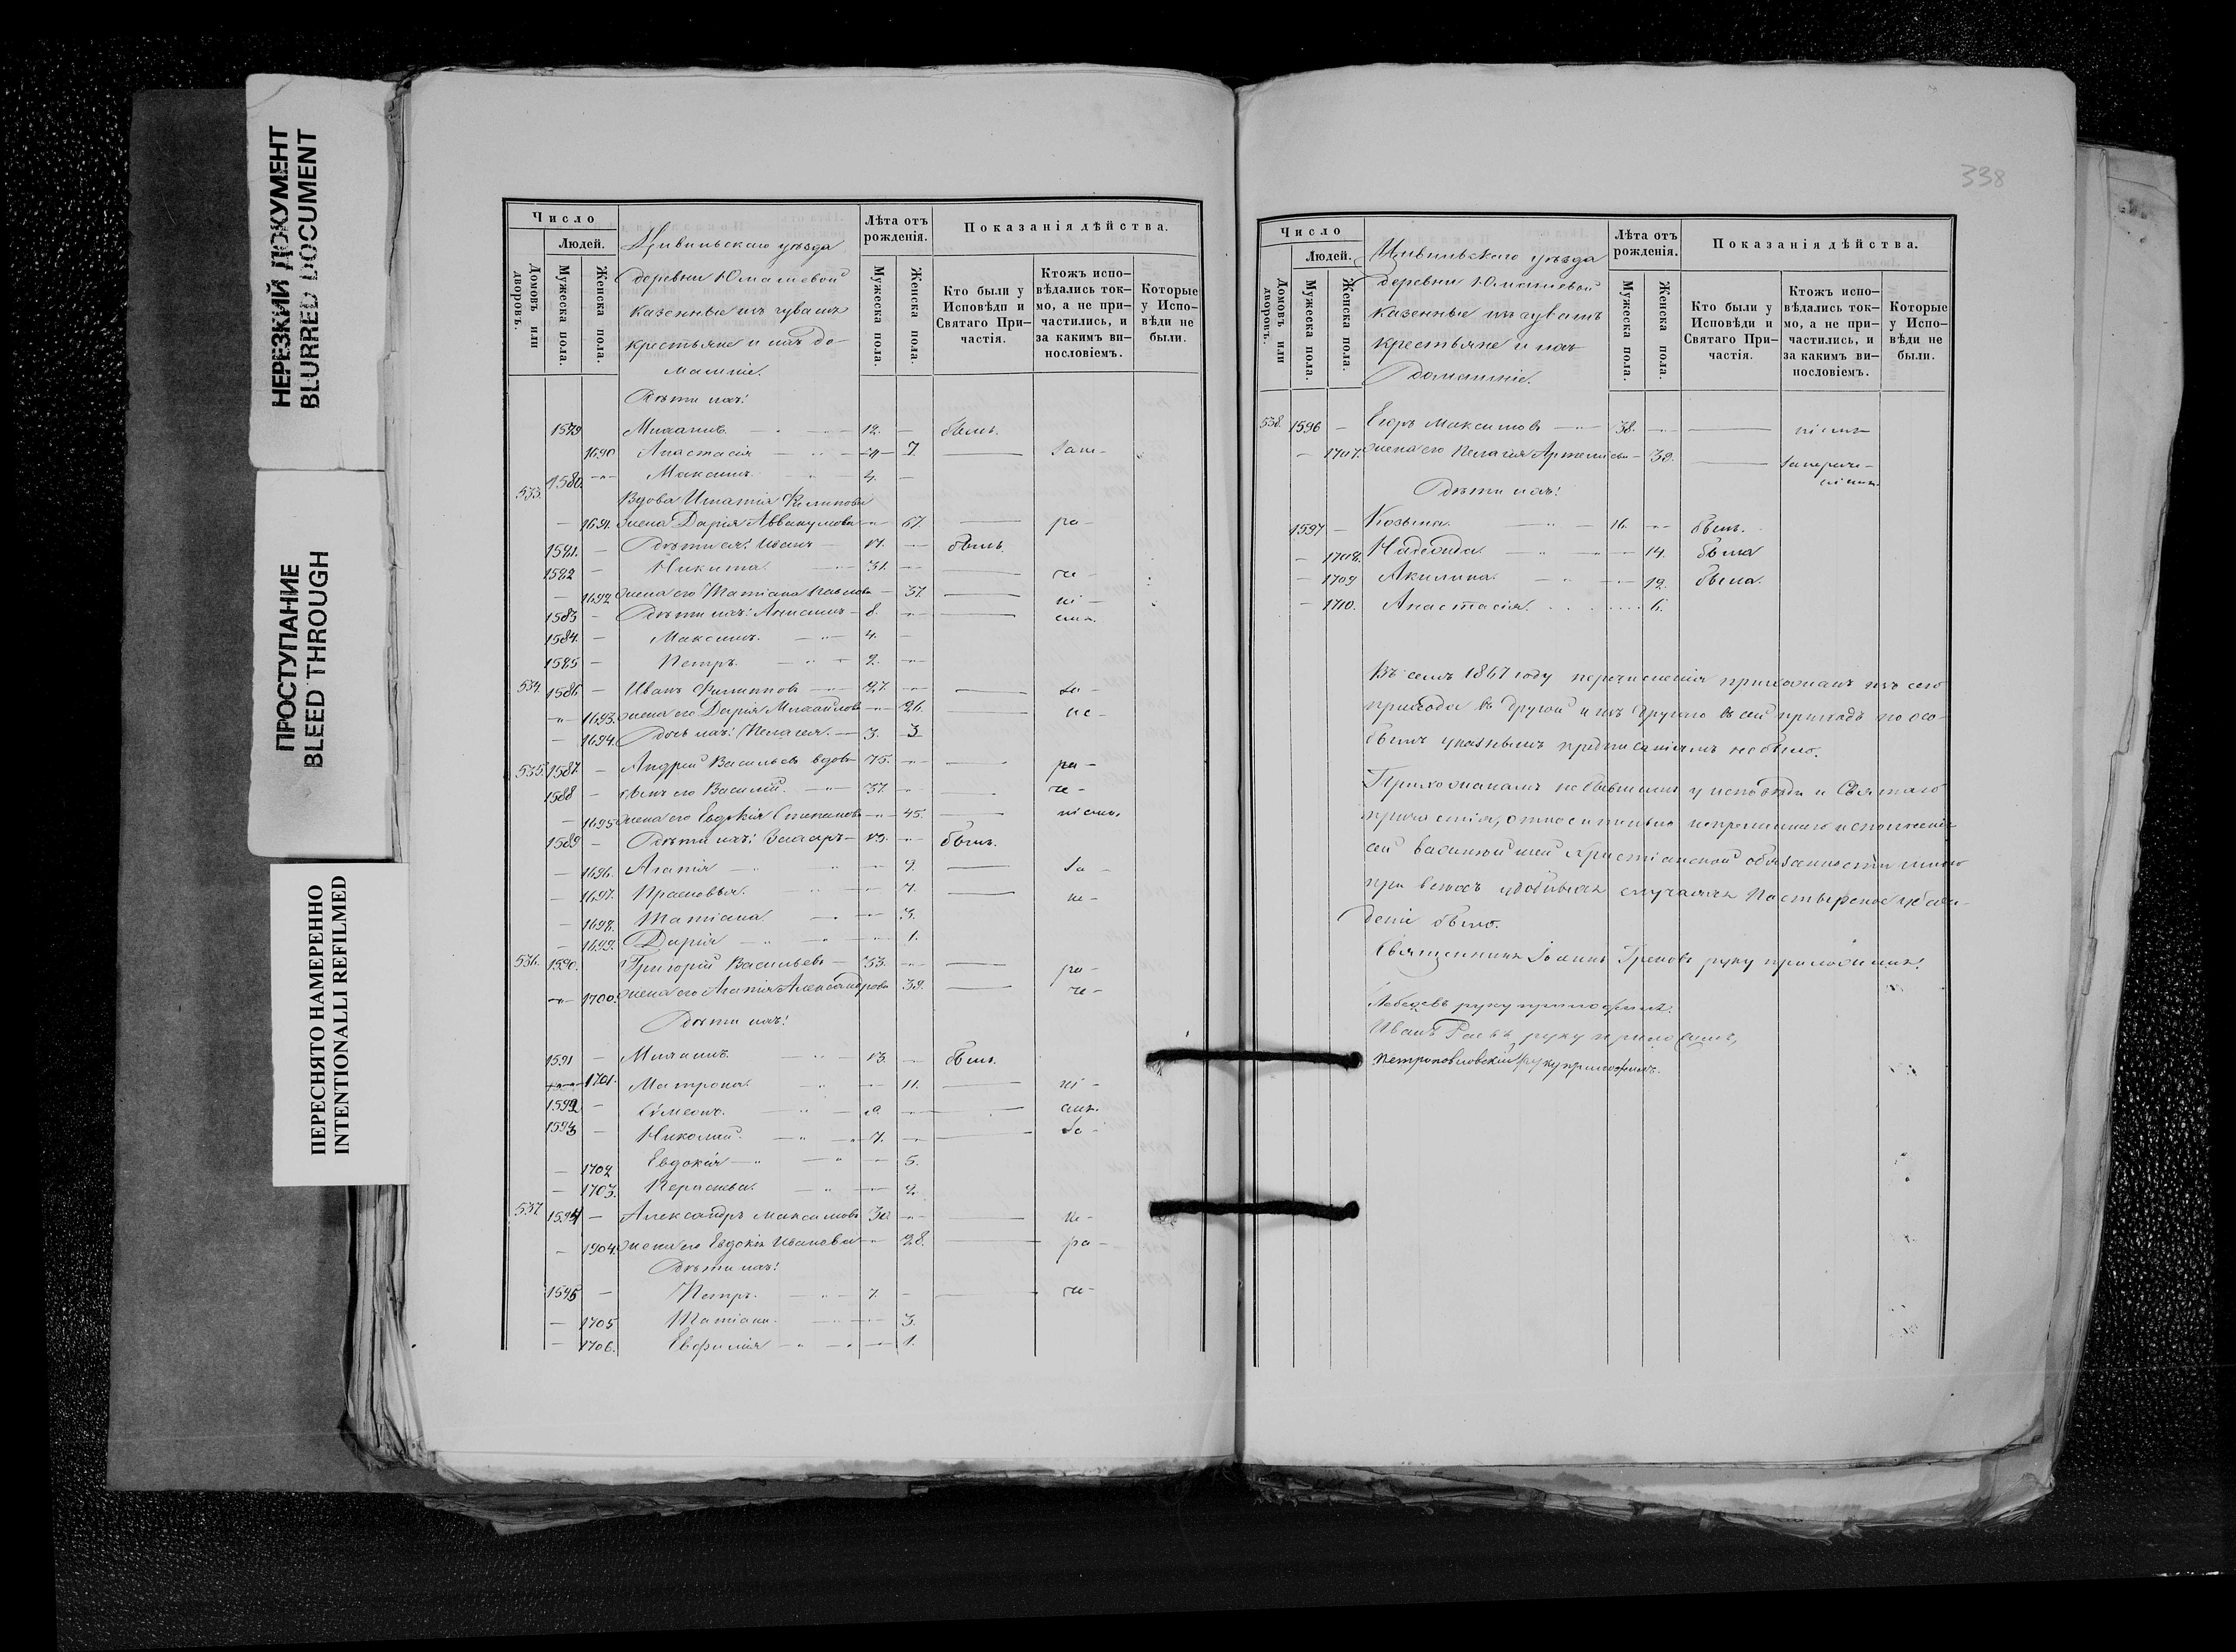 НЕРЕЗКИЙ ДОКУМЕНТ
BLURRED DOCUMENT
ПРОСТУПАНИЕ
BLEED THROUGH
ПЕРЕСНЯТО НАМЕРЕННО
INTENTIONALLI REFILMED
Число
Людей.
Домовъ или дворовъ.
Мужеска пола.
Женска пола.
Цивильскаго уѣзда
деревни Юмашевой
казенные изъ чувашъ
крестьяне и ихъ до-
машніе.
Лѣта отъ рожденія.
Мужеска пола.
Женска пола.
Показанія дѣйства.
Кто были у Исповѣди и Святаго При-частія.
Ктожъ испо-вѣдались ток-мо, а не при-частились, и за какимъ ви-нословіемъ.
Которые у Испо-вѣди не были.
Дѣти ихъ:
1579 Михаилъ 12. — былъ.
1690 Анастасія 7. — за не-
1580. Максимъ 4. —
533. Вдова Игнатія Филипова
— 1691. жена Дарія Аввакумова 67. — ра-
1581. — Дѣти ея: Иванъ — 17. — былъ.
1582 — Никита 31. — че-
— 1692 жена его Татіана Павлова — 37. — ні-
1583 — Дѣти ихъ: Анисимъ — 8. — емъ.
1584. — Максимъ. 4. —
1585 — Петръ. 2. —
534. 1586. — Иванъ Филиповъ 27. — за-
1693. жена его Дарія Михайлова 26. — не-
— 1694. Дочь ихъ: Пелагея. — 3. 3
535. 1587. — Андрей Васильевъ вдовъ 75. — ра-
1588 — сынъ его Василій. 37. — че-
— 1695 жена его Евдокія Степанова 45. — ніемъ.
1589 — Дѣти ихъ: Захаръ — 13. — былъ.
— 1696. Агапія 9. — за-
— 1697. Прасковья. 7. — не-
— 1698. Татіана 3.
— 1699. Дарія 1.
536. 1590. Григорій Васильевъ — 33. — ра-
1700. жена его Агапія Александрова 39. — че-
Дѣти ихъ:
1591 — Михаилъ. 13. — былъ.
1701. Матрона. 11. — ні-
1592 — Сѵмеонъ. 9. — емъ.
1593 — Николай. 7. — За-
— 1702 Евдокія 5.
— 1703. Параскева. 2.
537. 1594 — Александръ Максимовъ 30. — не-
— 1904. жена его Евдокія Иванова 28. — ра-
Дѣти ихъ:
1595 — Петръ. 7. — че-
— 1705 Татіана. 3.
— 1706. Евфимія 1.
338
Число
Людей.
Домовъ или дворовъ.
Мужеска пола.
Женска пола.
Цивильскаго уѣзда
деревни Юмашевой
казенные изъ чувашъ
крестьяне и ихъ
домашніе.
Лѣта отъ рожденія.
Мужеска пола.
Женска пола.
Показанія дѣйства.
Кто были у Исповѣди и Святаго При-частія.
Ктожъ испо-вѣдались ток-мо, а не при-частились, и за какимъ ви-нословіемъ.
Которые у Испо-вѣди не были.
538. 1596 — Егоръ Максимовъ 38. — ніемъ
— 1707. жена его Пелагія — 39. — за нераче-
ніемъ.
Дѣти ихъ:
1597 — Козьма. 16. — былъ.
— 1708. Надежда. 14. была
— 1709 Акилина. 12. была.
— 1710. Анастасія. 6.
Въ семъ 1867 году перечисленія прихожанъ изъ сего
прихода въ другой и изъ другаго въ сей приходъ по осо-
бымъ указнымъ предписаніямъ не было.
Прихожанамъ не бывшимъ у исповѣди и Святаго
причастія, относительно непремѣннаго исполненія
сей важнѣйшей христіанской обязанности мною
при всѣхъ удобныхъ случаяхъ Пастырское убѣж-
деніе было.
Священникъ Іоаннъ руку приложилъ.
Лебедевъ руку приложилъ.
Иванъ руку приложилъ,
Петропавловскій руку приложилъ.